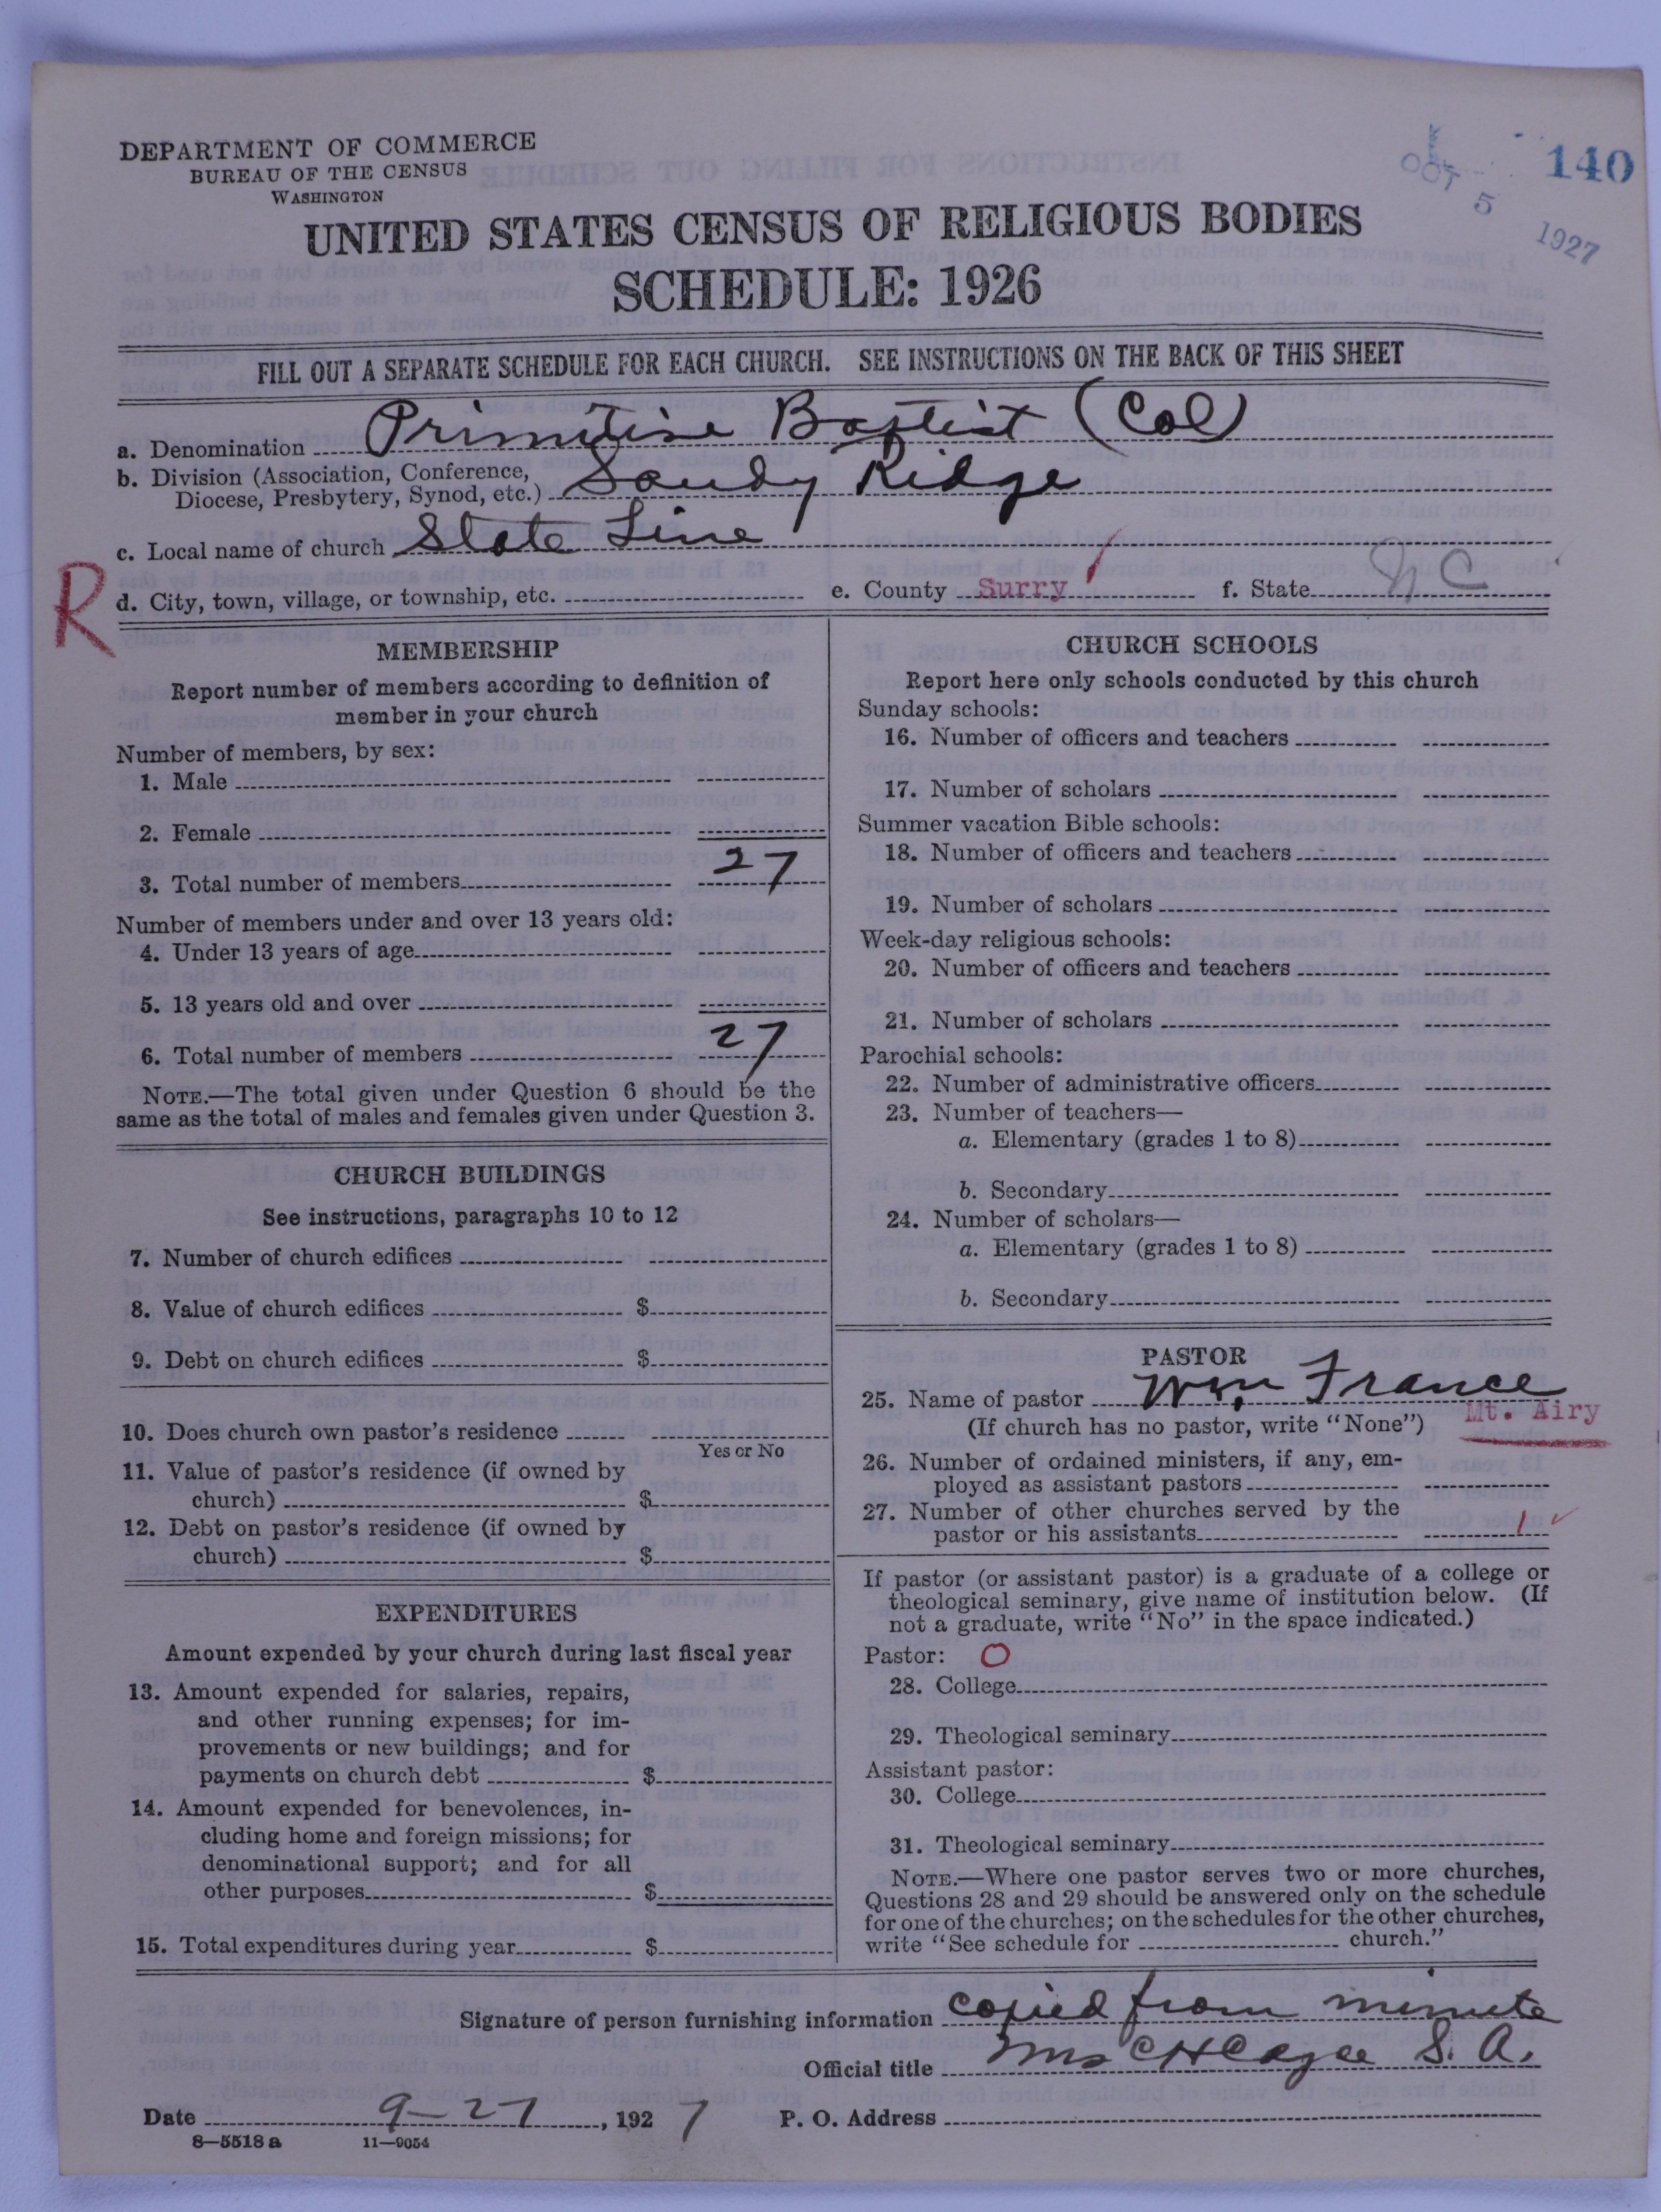 DEPARTMENT OF COMMERCE
BUREAU OF THE CENSUS
WASHINGTON
OCT 5 1927
140
UNITED STATES CENSUS OF RELIGIOUS BODIES
SCHEDULE: 1926
FILL OUT A SEPARATE SCHEDULE FOR EACH CHURCH. SEE INSTRUCTIONS ON THE BACK OF THIS SHEET
a. Denomination Primitive Baptist (Col)
b. Division (Association, Conference,
Diocese, Presbytery, Synod, etc.) Sandy Ridge
c. Local name of church State Line
R
d. City, town, village, or township, etc. e. County Surry f. State NC
MEMBERSHIP
Report number of members according to definition of
member in your church
Number of members, by sex:
1. Male
2. Female
3. Total number of members 27
Number of members under and over 13 years old:
4. Under 13 years of age
5. 13 years old and over
6. Total number of members 27
NOTE.—The total given under Question 6 should be the
same as the total of males and females given under Question 3.
CHURCH BUILDINGS
See instructions, paragraphs 10 to 12
7. Number of church edifices
8. Value of church edifices $
9. Debt on church edifices $
10. Does church own pastor's residence
Yes or No
11. Value of pastor's residence (if owned by
church) $
12. Debt on pastor's residence (if owned by
church) $
EXPENDITURES
Amount expended by your church during last fiscal year
13. Amount expended for salaries, repairs,
and other running expenses; for im-
provements or new buildings; and for
payments on church debt $
14. Amount expended for benevolences, in-
cluding home and foreign missions; for
denominational support; and for all
other purposes $
15. Total expenditures during year $
CHURCH SCHOOLS
Report here only schools conducted by this church
Sunday schools:
16. Number of officers and teachers
17. Number of scholars
Summer vacation Bible schools:
18. Number of officers and teachers
19. Number of scholars
Week-day religious schools:
20. Number of officers and teachers
21. Number of scholars
Parochial schools:
22. Number of administrative officers
23. Number of teachers—
a. Elementary (grades 1 to 8)
b. Secondary
24. Number of scholars—
a. Elementary (grades 1 to 8)
b. Secondary
PASTOR
25. Name of pastor Wm France
(If church has no pastor, write "None") Mt. Airy
26. Number of ordained ministers, if any, em-
ployed as assistant pastors
27. Number of other churches served by the
pastor or his assistants 1
If pastor (or assistant pastor) is a graduate of a college or
theological seminary, give name of institution below. (If
not a graduate, write "No" in the space indicated.)
Pastor: O
28. College
29. Theological seminary
Assistant pastor:
30. College
31. Theological seminary
NOTE.—Where one pastor serves two or more churches,
Questions 28 and 29 should be answered only on the schedule
for one of the churches; on the schedules for the other churches,
write "See schedule for church."
Signature of person furnishing information copied from minute
Official title Mrs C H Cagee S. A.
Date 9-27, 1927 P. O. Address
8—5518 a 11—9054